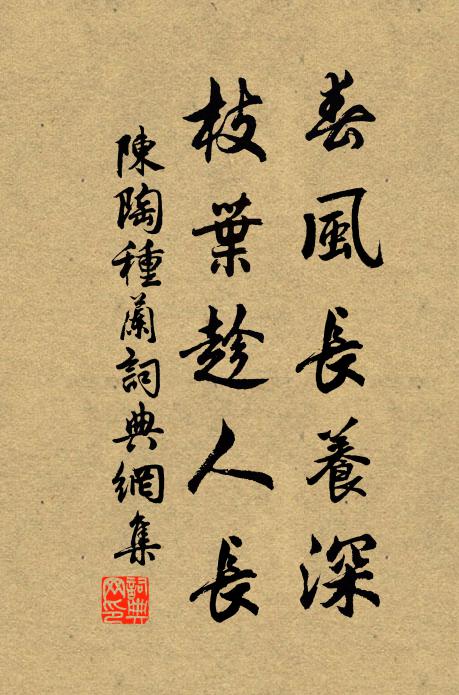 春風長養深
枝葉趁人長
陳陶種蘭詞典網集
詞典
网印